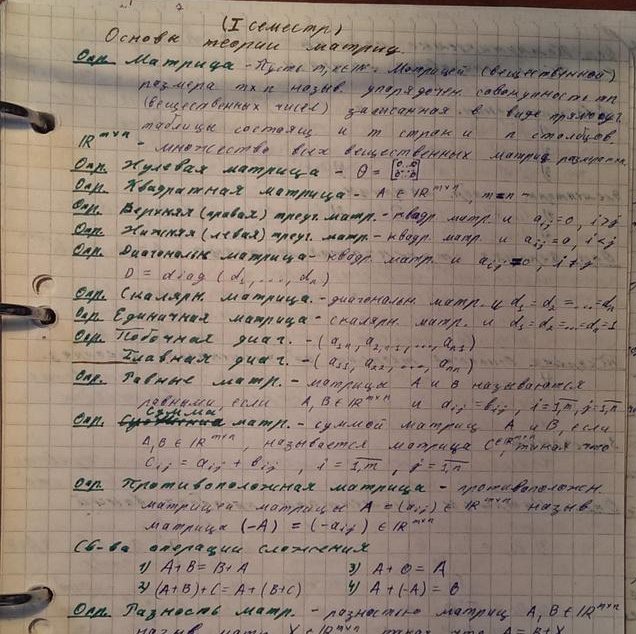 (I семестр)
Основа теории матриц
Опр. Матрица - Пусть m, n ∈ ℕ. Матрицей (вещественной)
размера m×n назыв. упорядочен совокупность mn
(вещественных чисел) записанная в виде прямоуг.
таблицы состоящ и m строк и n столбцов.
ℝ^{m×n} - множество всех вещественных матриц
Опр. Нулевая матрица - Θ = [0..0 0..0]
Опр. Квадратная матрица - A ∈ ℝ^{m×n}, m=n
Опр. Верхняя (правая) треуг. матр. - квадр. матр. и a_{ij}=0, i>j
Опр. Нижняя (левая) треуг. матр. - квадр. матр. и a_{ij}=0, i<j
Опр. Диагональн матрица - квадр. матр. и a_{ij}=0, i≠j
D = diag (d₁, ..., dₙ)
Опр. Скалярн. матрица. - диагональн. матр. и d₁=d₂=...=dₙ
Опр. Единичная матрица - скалярн. матр. и d₁=d₂=...=dₙ=1
Опр. Побочная диаг. - (a_{1n}, a_{2,n-1}, ..., a_{n1})
Главная диаг. - (a_{11}, a_{22}, ..., a_{nn})
Опр. Равные матр. - матрицы A и B называются
равными, если A, B ∈ ℝ^{m×n} и a_{ij} = b_{ij}, i=1,m, j=1,n
Опр. Сумма матр. - суммой матриц A и B, если
A, B ∈ ℝ^{m×n}, называется матрица C ∈ ℝ^{m×n}, такая что
c_{ij} = a_{ij} + b_{ij}, i = 1,m, j = 1,n
Опр. Противоположная матрица - противоположн.
матрицей матрицы A = (a_{ij}) ∈ ℝ^{m×n} назыв.
матрица (-A) = (-a_{ij}) ∈ ℝ^{m×n}
Св-ва операции сложения
1) A+B = B+A 3) A + Θ = A
2) (A+B)+C = A+(B+C) 4) A + (-A) = Θ
Опр. Разность матр. - разностью матриц A, B ∈ ℝ^{m×n}
назыв. матр. X ∈ ℝ^{m×n} такая, что A = B + X